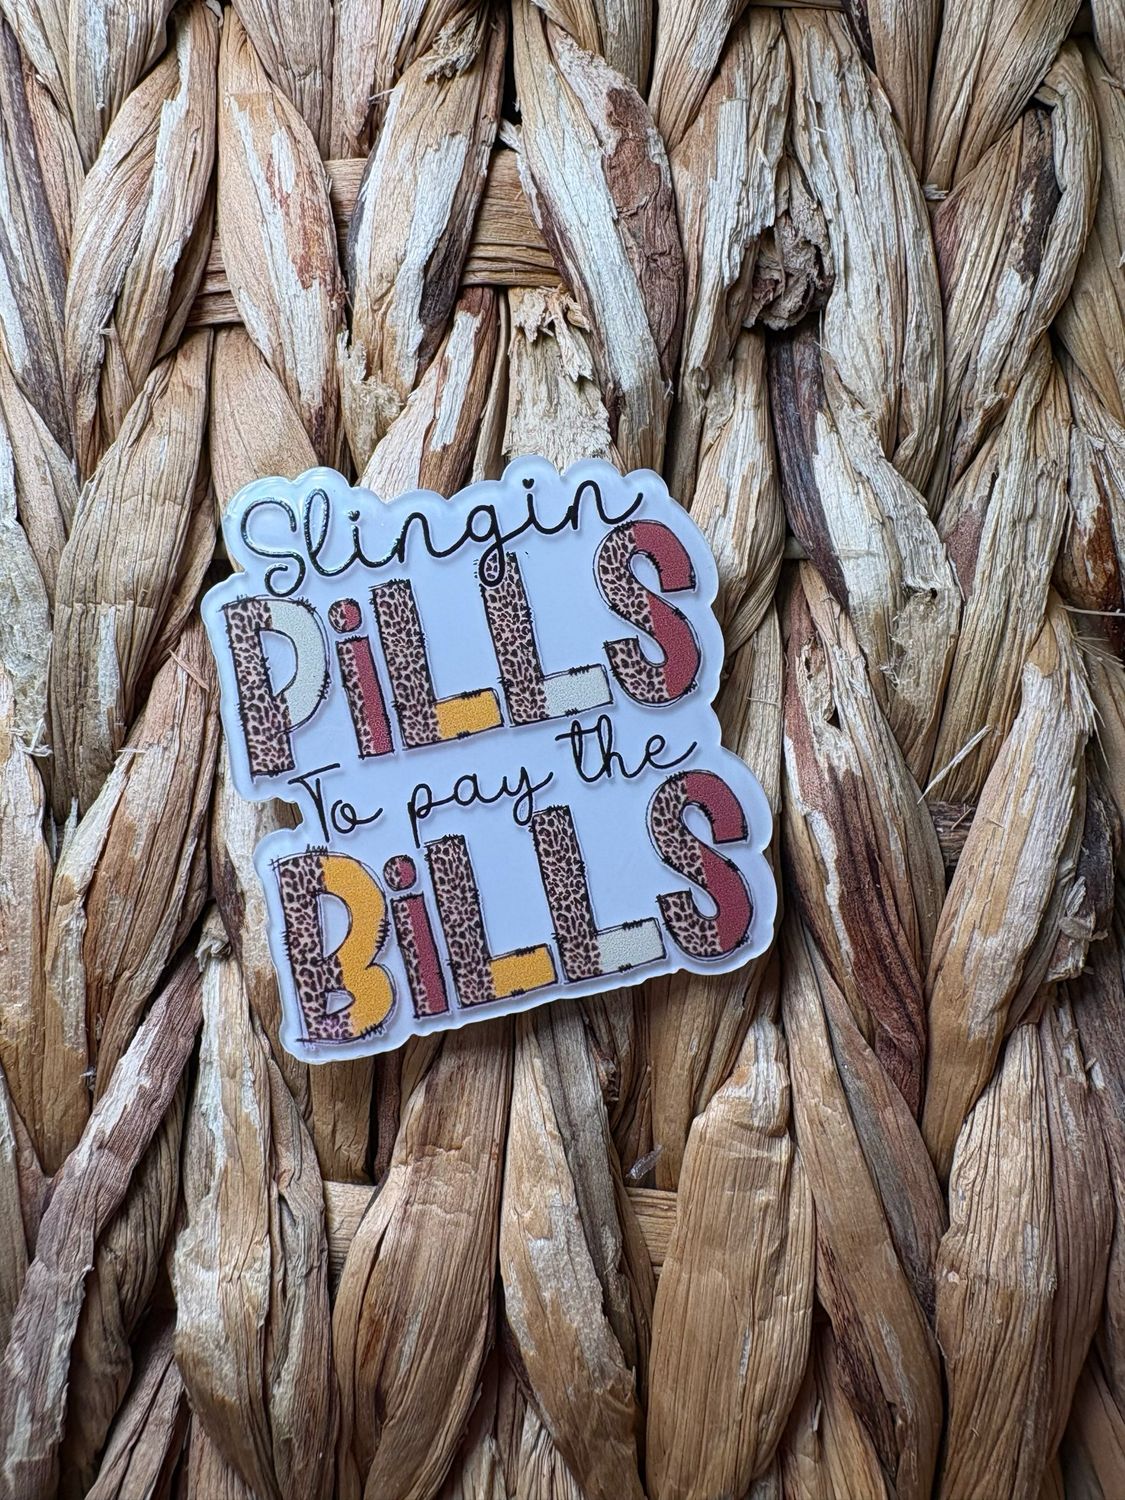 Slingin
PiLLS
To pay the
BiLLS